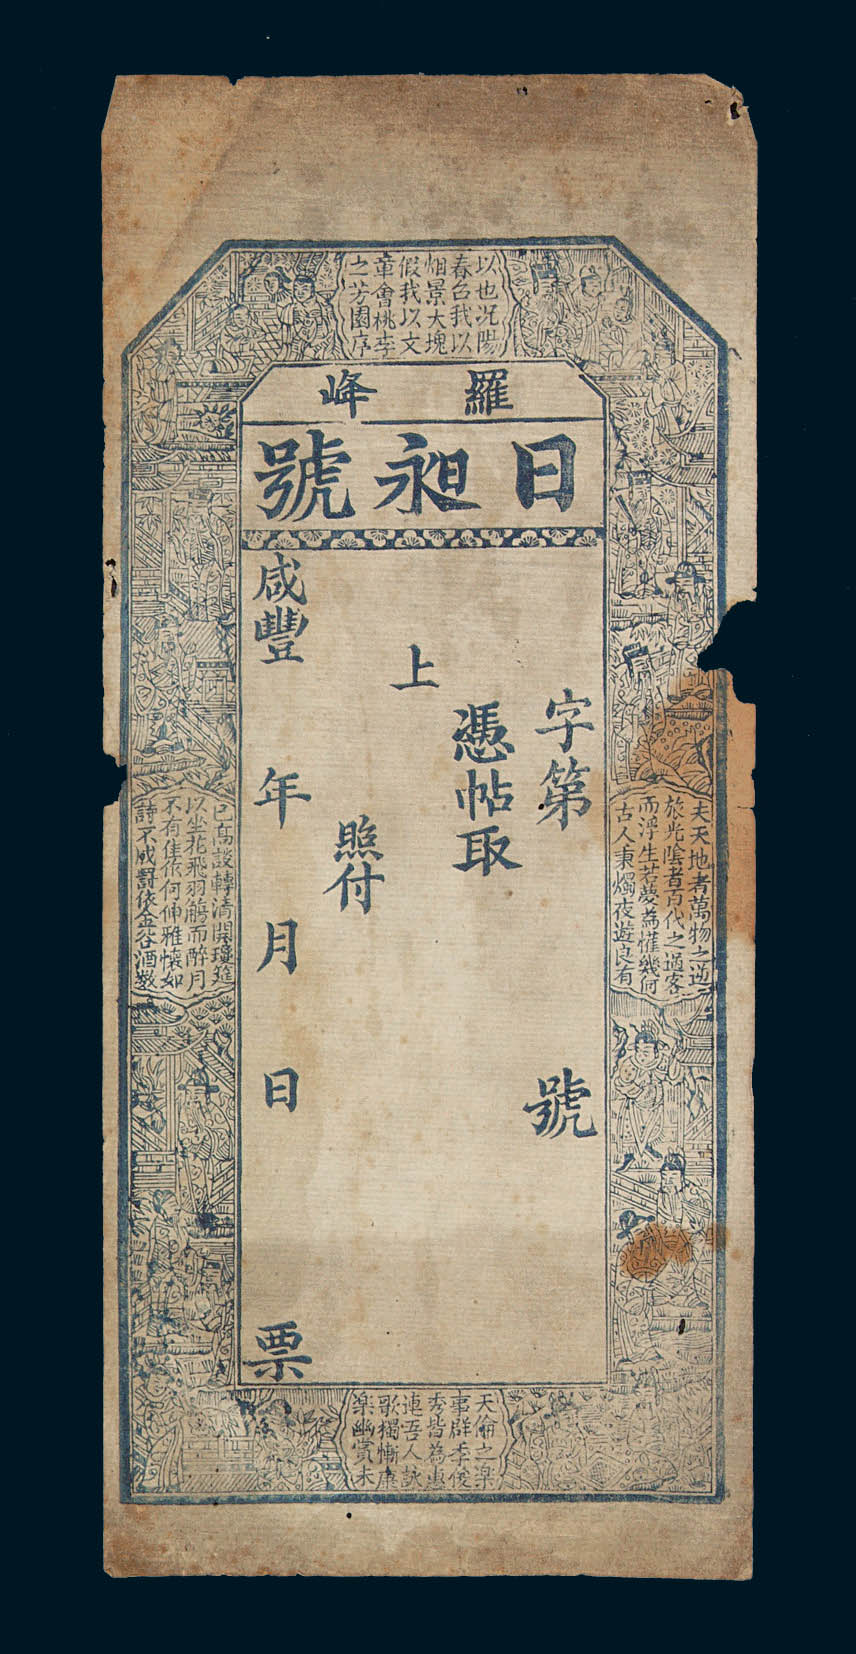 羅峰
日昶號
字第 號
憑帖取
上
照付
咸豐 年 月 日 票
夫天地者萬物之逆
旅光陰者百代之過客
而浮生若夢為懽幾何
古人秉燭夜遊良有
以也況陽
春召我以
烟景大塊
假我以文
章會桃李
之芳園序
天倫之楽
事群季俊
秀皆為惠
連吾人詠
歌獨慚康
楽幽賞未
已高談轉清開瓊筵
以坐花飛羽觴而醉月
不有佳作何伸雅懷如
詩不成罰依金谷酒數